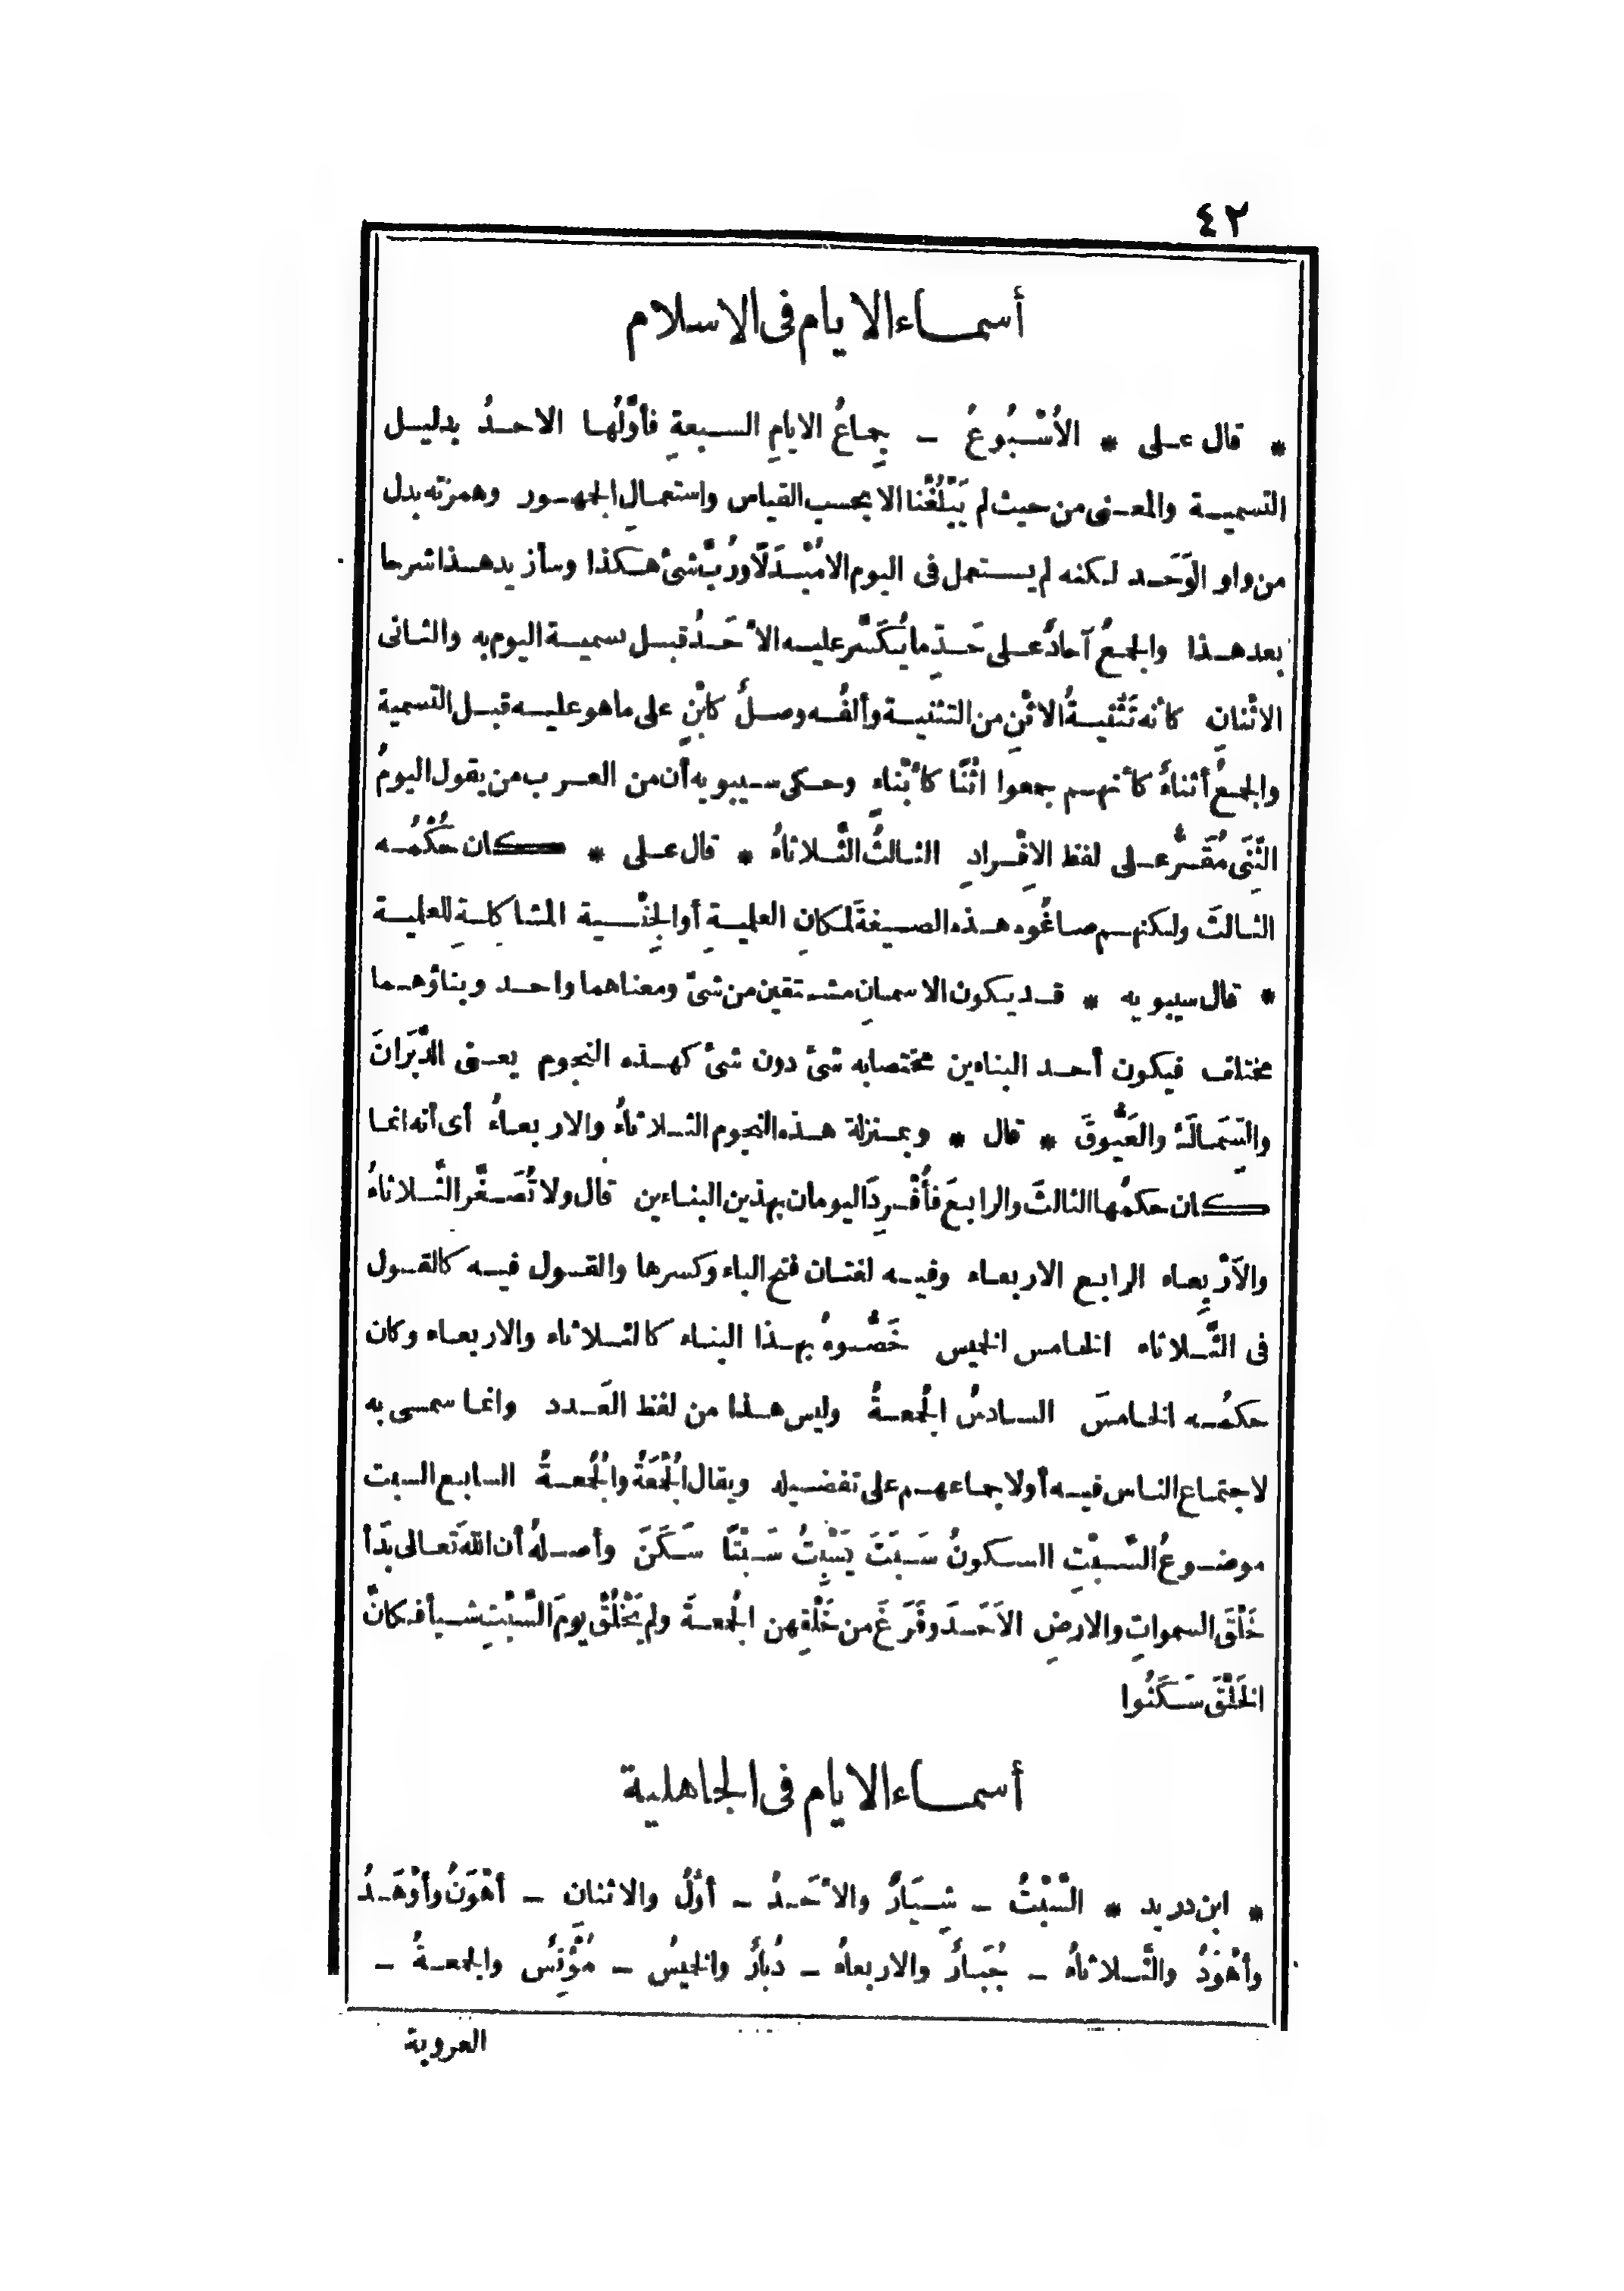 ٤٢
أسماء الايام فى الاسلام
* قال على * الأُسْبُوعُ ــ جِماعُ الايامِ السبعةِ فأوّلُها الاحدُ بدليل
التسمية والمعنى من حيث لم يَبْلُغْنا الا بحسب القياس واستعمالِ الجمهور وهمزته بدل
من واو الوَحَد لكنه لم يستعمل فى اليوم الا مُبْدَلًا ورُبَّ شئ هكذا وسأزيد هذا شرحا
بعد هذا والجمعُ آحادٌ على حَدِّ ما يُكَسَّر عليه الأحَدُ قبل تسمية اليوم به والثانى
الاثْنانِ كأنه تَثْنِيةُ الاثْنِ من التثنية وألفُه وصلُ كابْنٍ على ما هو عليه قبل التسمية
والجمعُ أثناءُ كأنهم جمعوا اثْنًا كأبْناء وحكى سيبويه أن من العرب من يقول اليومُ
الثِّنَى مُقَرٌّ على لفظ الافْرادِ الثالثُ الثَّلاثاءُ * قال على * كان حُكْمُه
الثالثَ ولكنهم صاغُوه هذه الصيغةَ لمكانِ العلميةِ أوالجِنْسية المشاكِلةِ للعلمية
* قال سيبويه * قد يكون الاسمانِ مشتقين من شئ ومعناهما واحد وبناؤهما
مختلف فيكون أحد البناءين مختصا به شئ دون شئ كهذه النجوم يعنى الدَّبَرانَ
والسِّمَاكَ والعَيُّوقَ * قال * وبمنزلة هذه النجوم الثلاثاءُ والاربعاءُ أى أنه انما
كان حكمُها الثالثَ والرابعَ فأُفْرِدَ اليومان بهذين البناءين قال ولا تُصَغَّر الثَّلاثاءُ
والأرْبِعاء الرابع الاربعاء وفيه لغتان فتح الباء وكسرها والقول فيه كالقول
فى الثَّلاثاء الخامس الخميس خَصُّوهُ بهذا البناء كالثلاثاء والاربعاء وكان
حكمُه الخامسَ السادسُ الجُمعةُ وليس هذا من لفظ العَدد وانما سمى به
لاجتماع الناس فيه أولاجماعهم على تفضيله ويقال الجُمَعَةُ والجُمعةُ السابع السبت
موضوعُ السَّبْتِ السكونُ سَبَتَ يَسْبِتُ سَبْتًا سَكَنَ وأصلُه أن اللهَ تعالى بَدَأ
خَلْقَ السمواتِ والارضِ الأحَدَ وفَرَغَ من خَلْقِهن الجُمعةَ ولم يَخْلُقْ يومَ السَّبْتِ شيأ فكانّ
الخَلْقَ سَكَنُوا
أسماء الايام فى الجاهلية
* ابن دريد * السَّبْتُ ــ شِيَارٌ والأحَدُ ــ أوّلُ والاثنانِ ــ أهْوَنُ وأوْهَدُ
وأهْوَدُ والثَّلاثاءُ ــ جُبَارُ والاربعاءُ ــ دُبارُ والخميسُ ــ مُؤْنِسُ والجمعةُ ــ
العروبة